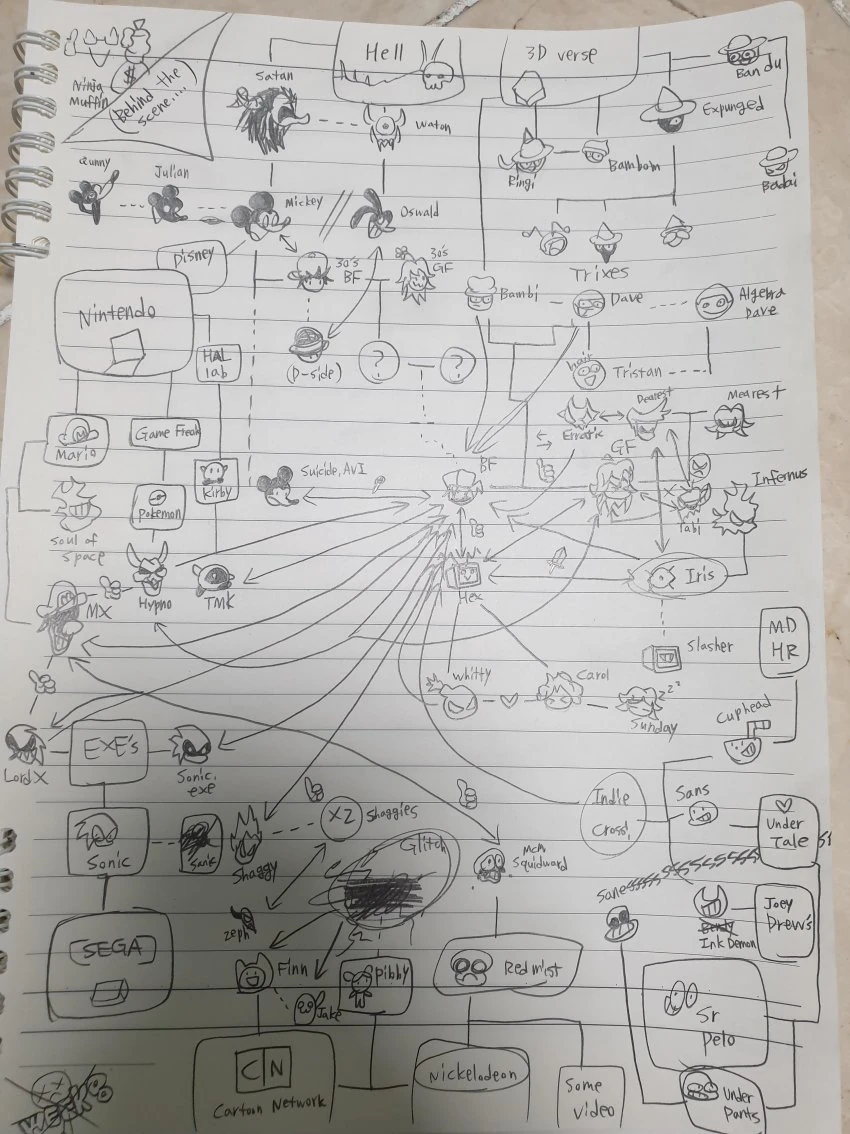 Ninja
Muffin
$
(Behind the
scene....)
Hell
3D verse
Satan
Bandu
Expunged
Waton
Qunny
Julian
Mickey
Oswald
Ringi
Bambom
Badai
Trixes
Disney
30's
BF
30's
GF
Nintendo
Bambi
Dave
Algebra
Dave
HAL
lab
(D-side)
?
?
hair
Tristan
Dearest
Mearest
Erratic
GF
Mario
Game Freak
M
Kirby
Suicide, AvI
BF
Infernus
Tabi
Pokemon
Soul of
Space
MX
Hypno
TMK
Hex
Iris
Slasher
MD
HR
Whitty
Carol
zzz
Sunday
Cuphead
Lord X
EXE's
Sonic.
exe
Indie
Cross
Sans
Under
Tale
X2
Shaggies
Sonic
Sanic
Shaggy
Glitch
Squidward
Sanessssssssssssss
Zeph
Bendy
Ink Demon
Joey
Drew's
[SEGA]
Finn
Jake
Pibby
Redmist
Sr
Pelo
CN
Cartoon Network
Nickelodeon
Some
video
Under
Pants
WEEK